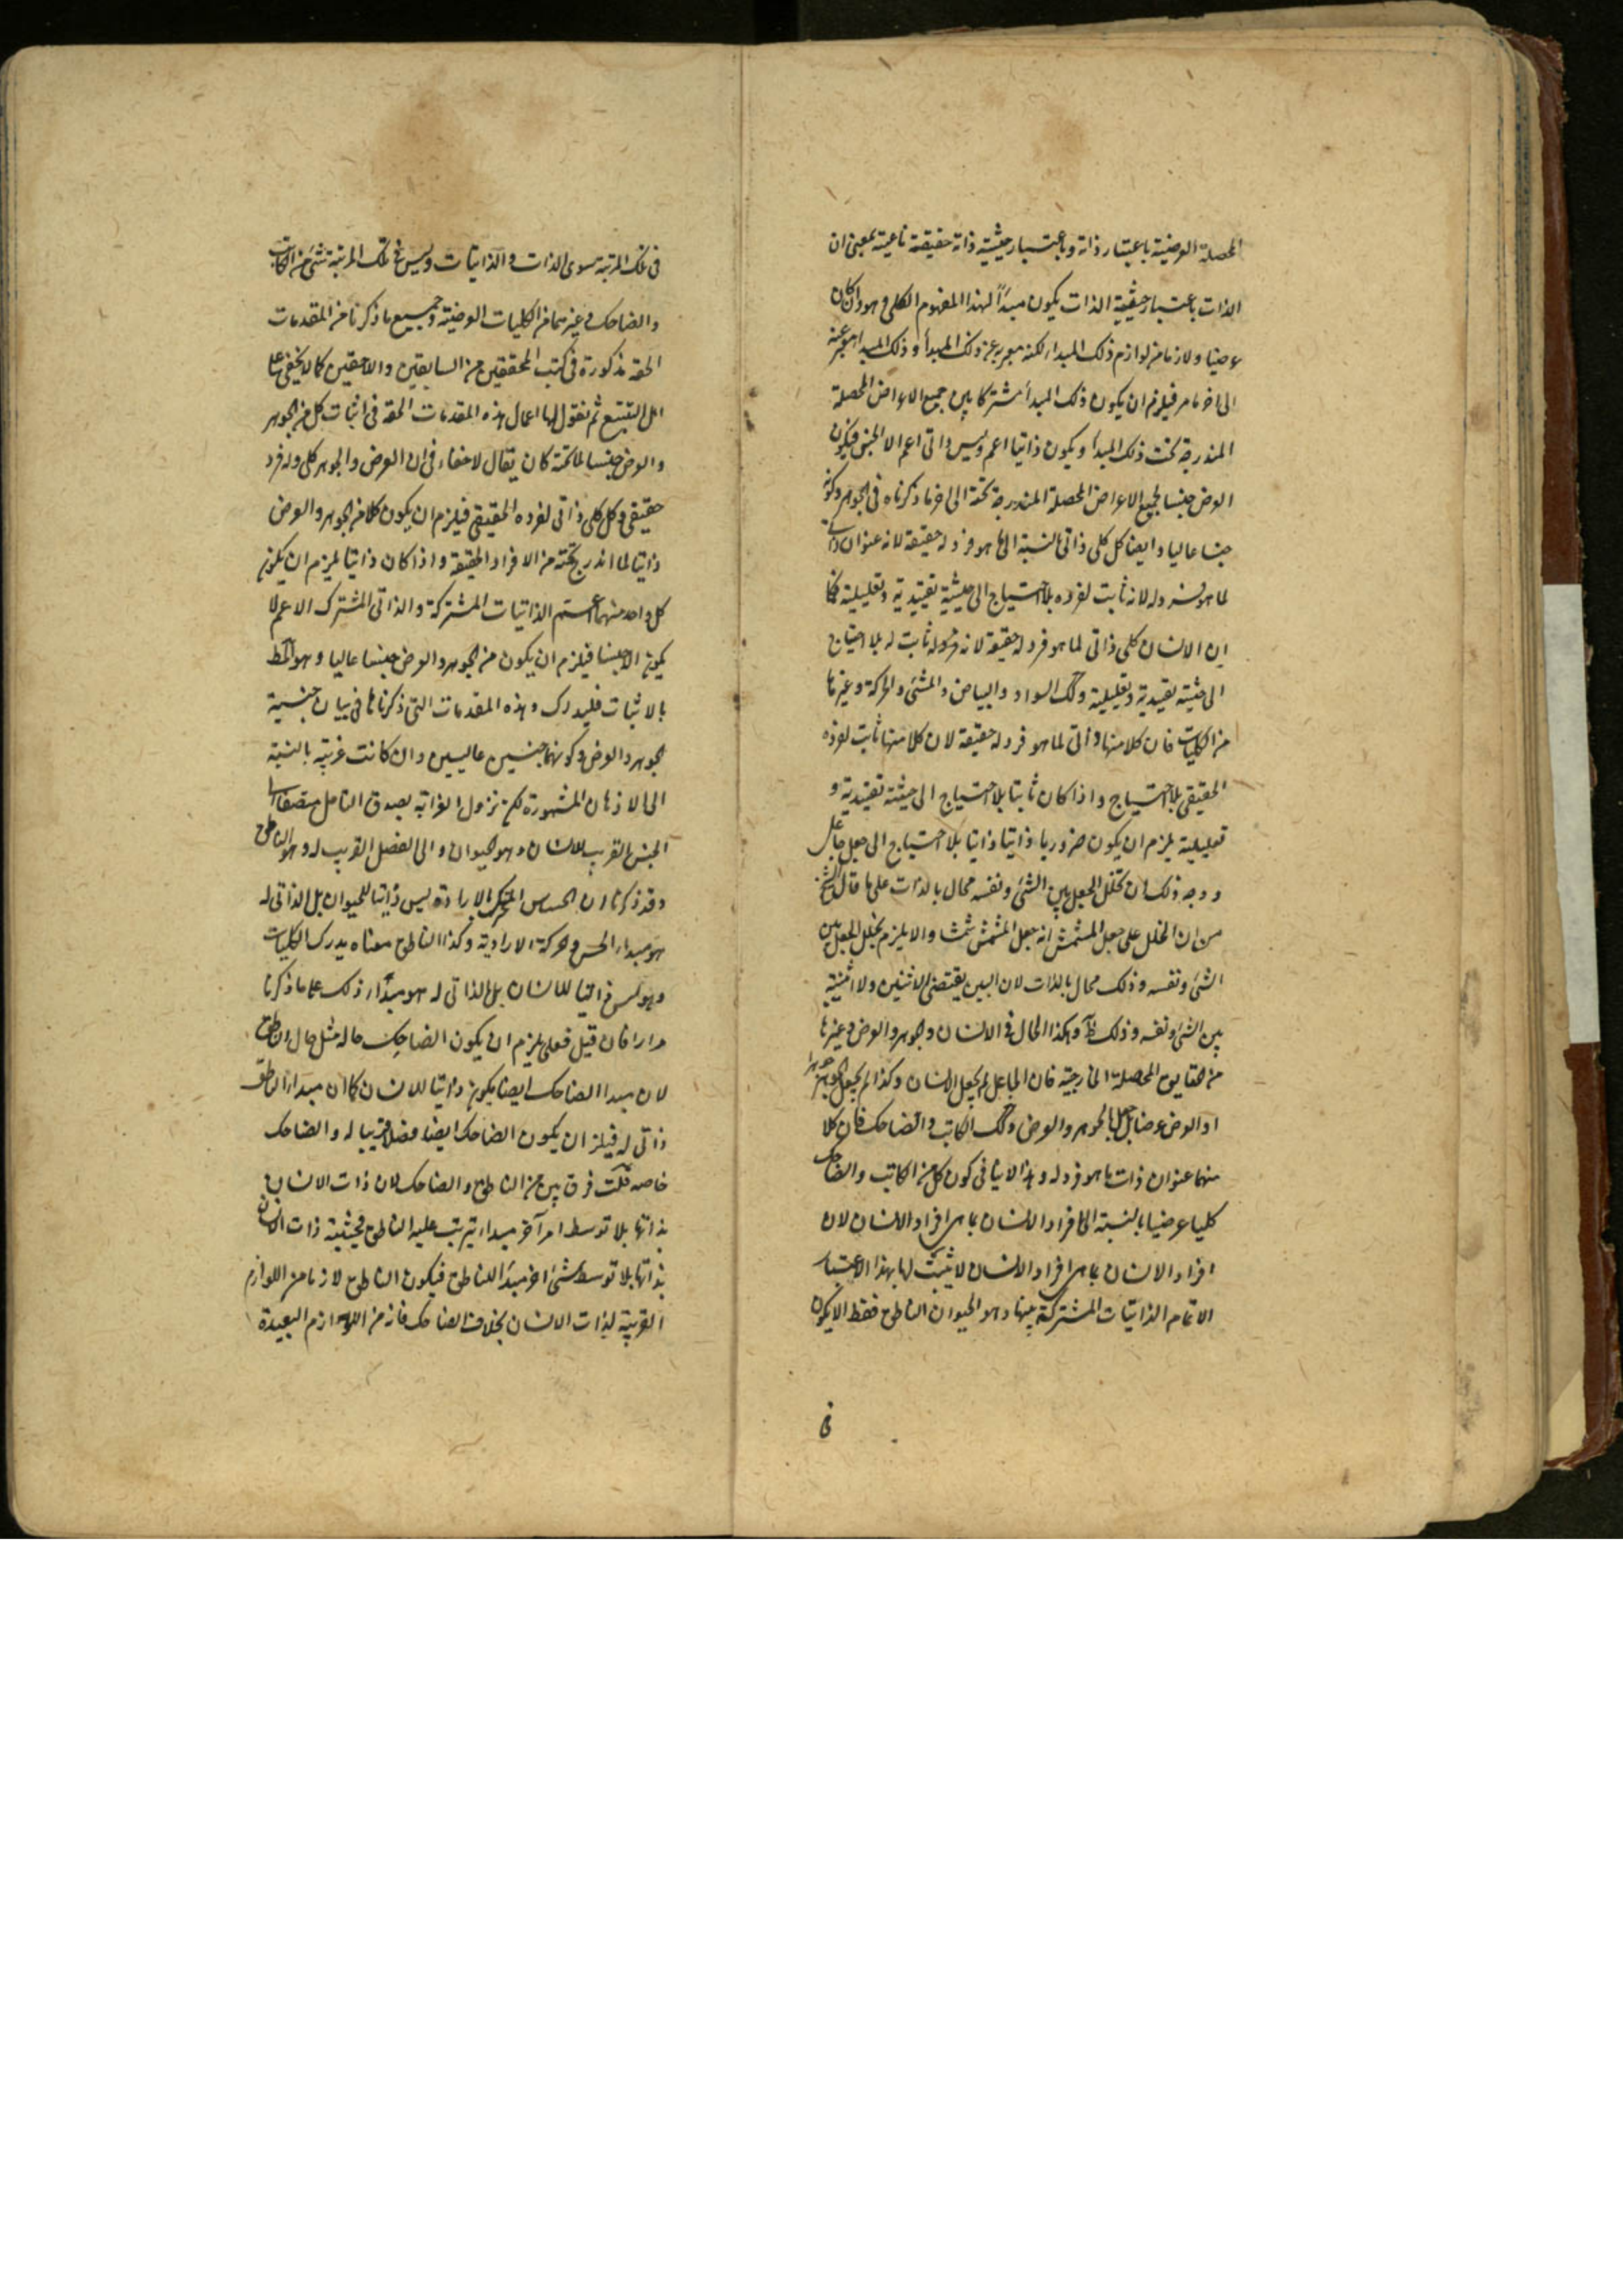 المحصلة العرضية باعتبار ذاته وباعتبار حيثية ذاته حقيقة ناعتية بمعنى ان
الذات باعتبار حيثية الذات يكون مبدأ لهذا المفهوم الكلي وهو وان كان
عرضيا ولازما من لوازم ذلك المبدا لكنه معبر به عن ذلك المبدأ وذلك المبدا معبر عنه
الى اخر ما مر فيلزم ان يكون ذلك المبدأ مشتركا بين جميع الاعراض المحصلة
المندرجة تحت ذلك المبدأ ويكون ذاتيا اعم وليس ذاتي اعم الا الجنس فيكون
العرض جنسا لجميع الاعراض المحصلة المندرجة تحته الى اخر ما ذكرناه في الجوهر وكونه
جنسا عاليا وايضا كل كلي ذاتي بالنسبة الى ما هو فرد له حقيقة لانه عنوان ذات
لما هو فرد له لانه ثابت لفرده بلا احتياج الى حيثية تقييدية وتعليلية فكما
ان الانسان كلي ذاتي لما هو فرد له حقيقة لانه فرد له ثابت له بلا احتياج
الى حيثية تقييدية وتعليلية وكك السواد والبياض والمشي والحركة وغيرها
من الكليات فان كلا منها ذاتي لما هو فرد له حقيقة لان كلا منها ثابت لفرده
الحقيقي بلا احتياج واذا كان ثابتا بلا احتياج الى حيثية تقييدية و
تعليلية يلزم ان يكون ضروريا ذاتيا ذاتيا بلا احتياج الى جعل جاعل
ووجه ذلك ان تخلل الجعل بين الشئ ونفسه محال بالذات على ما قال الشيخ
من ان الجاعل جعل المشمش انه جعل المشمش مشمشا والا يلزم تخلل الجعل بين
الشئ ونفسه وذلك محال بالذات لان البين يقتضى الاثنين ولا اثنينية
بين الشئ ونفسه وذلك ظ وهكذا الحال في الانسان والجوهر والعرض وغيرها
من الحقايق المحصلة الخارجية فان الجاعل لم يجعل الانسان وكذا لم يجعل الجوهر جوهرا
او العرض عرضا بل جعل الجوهر والعرض وكك الكاتب والضاحك فان كلا
منهما عنوان ذات ما هو فرد له وهذا لا ينافي كون كل من الكاتب والضاحك
كليا عرضيا بالنسبة الى افراد الانسان بما هي افراد الانسان لان
افراد الانسان بما هي افراد الانسان لا يثبت لها بهذا الاعتبار
الا تمام الذاتيات المشتركة بينها وهو الحيوان الناطق فقط لا يكون
في
في تلك المرتبة سوى الذات والذاتيات وليس في تلك المرتبة شئ من الكاتب
والضاحك وغيرهما من الكليات العرضية وجميع ما ذكرنا من المقدمات
الحقة مذكورة في كتب المحققين من السابقين والاحقين كما لا يخفى على
اهل التتبع ثم نقول لها اعمال هذه المقدمات الحقة في اثبات كل من الجوهر
والعرض جنسا لما تحته كان يقال لا خفاء في ان العرض والجوهر كلي وله فرد
حقيقي وكل كلي ذاتي لفرده الحقيقي فيلزم ان يكون كلا من الجوهر والعرض
ذاتيا لما اندرج تحته من الافراد الحقيقة واذا كان ذاتيا يلزم ان يكون
كل واحد منهما اعم الذاتيات المشتركة والذاتي المشترك الاعم لا
يكون الا جنسا فيلزم ان يكون من الجوهر والعرض جنسا عاليا وهو المط
بالاثبات فليدرك وهذه المقدمات التي ذكرناها في بيان جنسية
الجوهر والعرض وكونهما جنسين عاليين وان كانت غريبة بالنسبة
الى الاذهان المشهورة لكن تزول الغرابة بصدق التامل
الجنس القريب للانسان وهو الحيوان والى الفصل القريب له وهو الناطق
وقد ذكرنا ان الحساس المتحرك بالارادة ليس ذاتيا للحيوان بل الذاتي له
هو مبدا الحس والحركة الارادية وكذا الناطق معناه يدرك الكليات
وهو ليس ذاتيا للانسان بل الذاتي له هو مبدأ ذلك على ما ذكرنا
مرارا فان قيل فعلى يلزم ان يكون الضاحك حاله مثل حال الناطق
لان مبدا الضاحك ايضا يكون ذاتيا للانسان كما ان مبدا الناطق
ذاتي له فيلزم ان يكون الضاحك ايضا فصلا قريبا له والضاحك
خاصه قلت فرق بين من الناطق والضاحك لان ذات الانسان
بذاتها بلا توسط امر آخر مبدا يترتب عليه الناطق فحيثية ذات الانسان
بذاتها بلا توسط شئ اخر مبدأ للناطق فيكون الناطق لازما من اللوازم
القريبة لذات الانسان بخلاف الضاحك فانه من اللوازم البعيدة